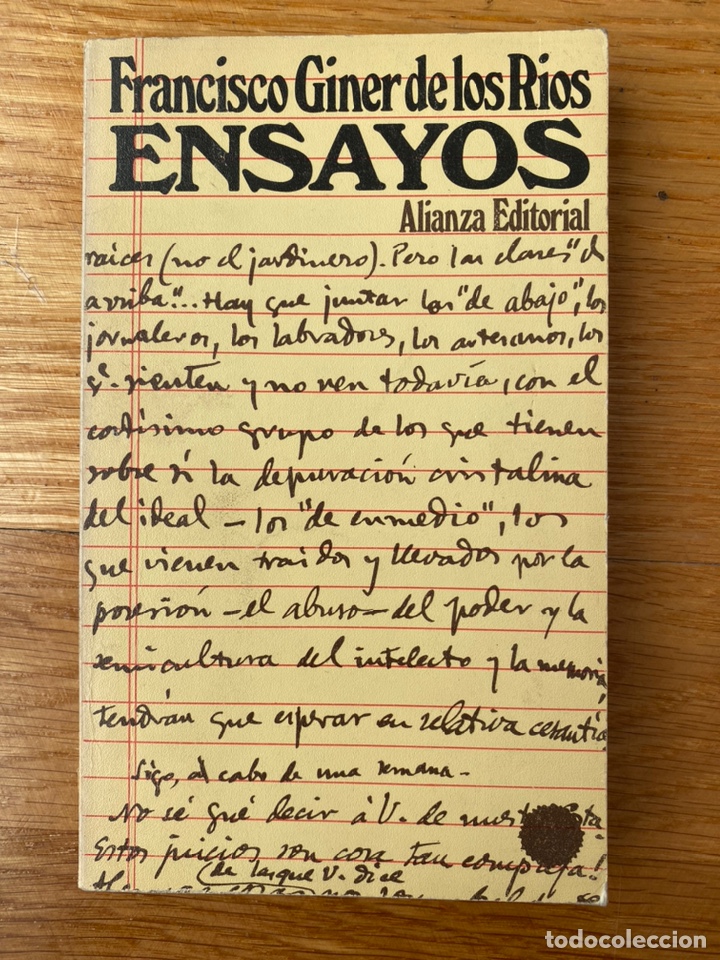 Francisco Giner de los Rios
ENSAYOS
Alianza Editorial
raices (no el jardinero). Pero las clases "de
arriba"... Hay que juntar los "de abajo", los
jornaleros, los labradores, los artesanos, los
q.e sienten y no ven todavía, con el
cortísimo grupo de los que tienen
sobre sí la depuración cristalina
del ideal – los "de enmedio", los
que vienen traidos y llevados por la
posesión – el abuso – del poder y la
semicultura del intelecto y la memoria,
tendrán que esperar en relativa cesantía.
Sigo, al cabo de una semana –
No sé qué decir á V. de
Estos juicios son cosa tan compleja!
(de lasque V. dice
todocoleccion